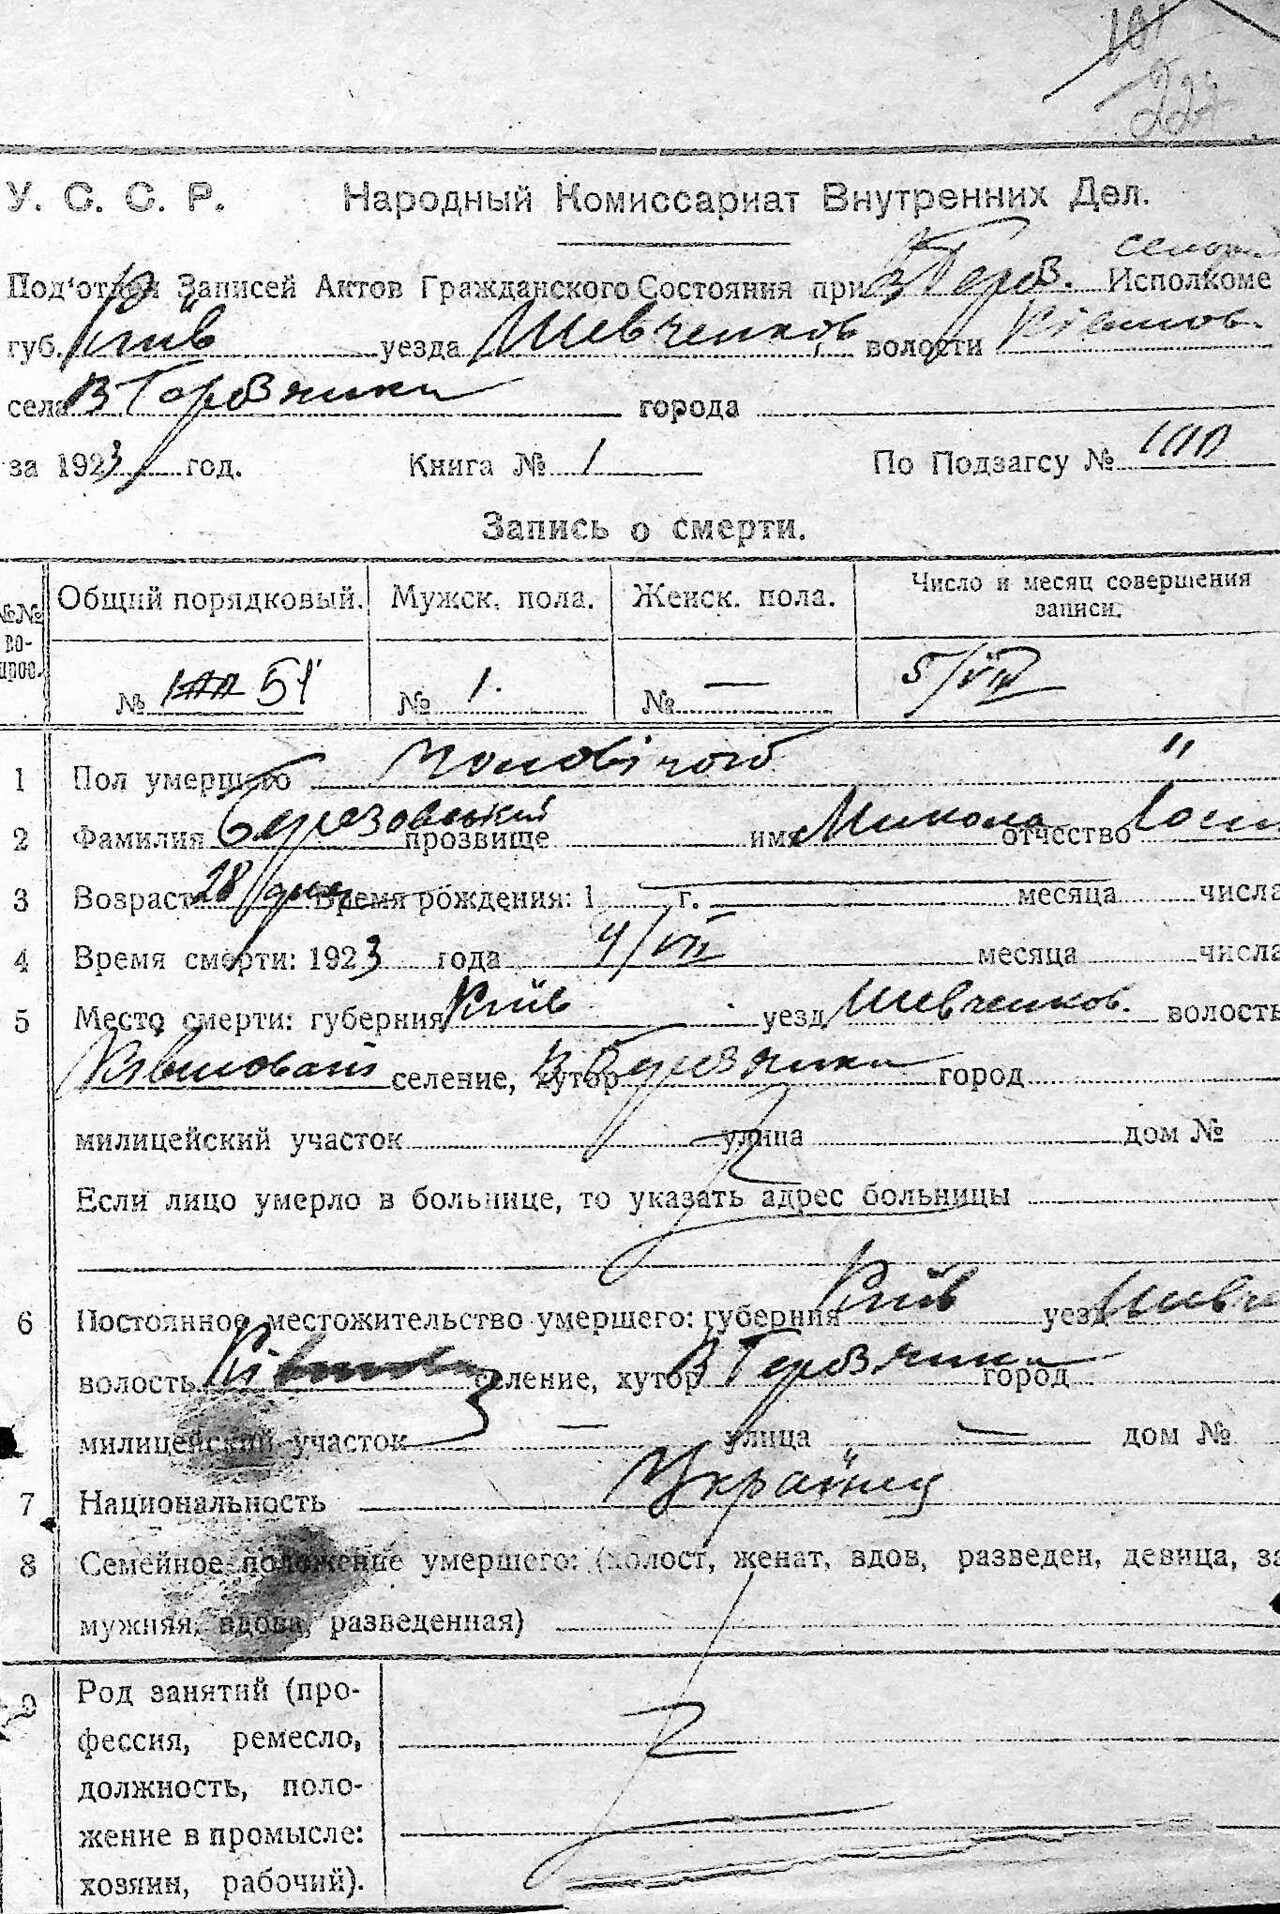 У. С. С. Р. Народный Комиссариат Внутренних Дел.
Под'отдел Записей Актов Гражданского Состояния при В Берез. Исполкоме
губ. Київ уезда Шевченков волости
села В Березянки города
за 1923 год. Книга № 1 По Подзагсу №
Запись о смерти.
№№ вопрос. Общий порядковый. Мужск. пола. Женск. пола. Число и месяц совершения записи.
№ 51 № 1. № — 5/VII
1 Пол умершего Чоловічого "
2 Фамилия Березовський прозвище имя Микола отчество
3 Возраст 28 днів Время рождения: 1 г. месяца числа
4 Время смерти: 1923 года 4/VII месяца числа
5 Место смерти: губерния Київ уезд Шевченков. волость
селение, хутор В Березянки город
милицейский участок улица дом №
Если лицо умерло в больнице, то указать адрес больницы
6 Постоянное местожительство умершего: губерния Київ уезд Шевче
волость селение, хутор В Березянки город
милицейский участок — улица — дом №
7 Национальность Українец
8 Семейное положение умершего: (холост, женат, вдов, разведен, девица, за
мужняя, вдова, разведенная)
9 Род занятий (про-
фессия, ремесло,
должность, поло-
жение в промысле:
хозяин, рабочий).